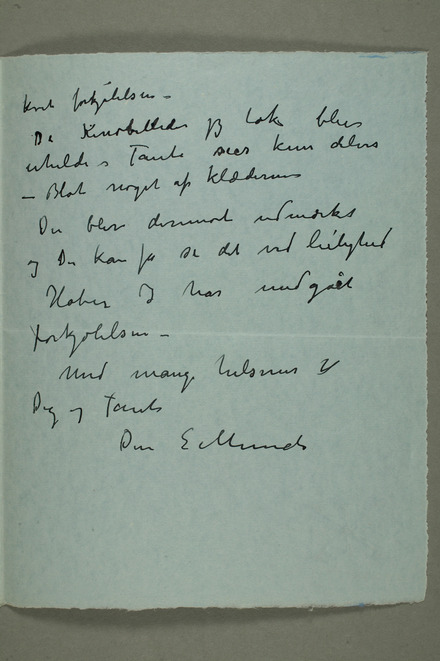 forkjølelsen –
De Kinobilleder jeg tok blev
uheldes Tante sees kun delvis
– Blot noget af klæderne
Du blev derimot udmerket
og Du kan jo se det ved leilighed
Haber I har undgået
forkjølelsen –
Med mange hilsener til
Dig og Tante
Din Edmund